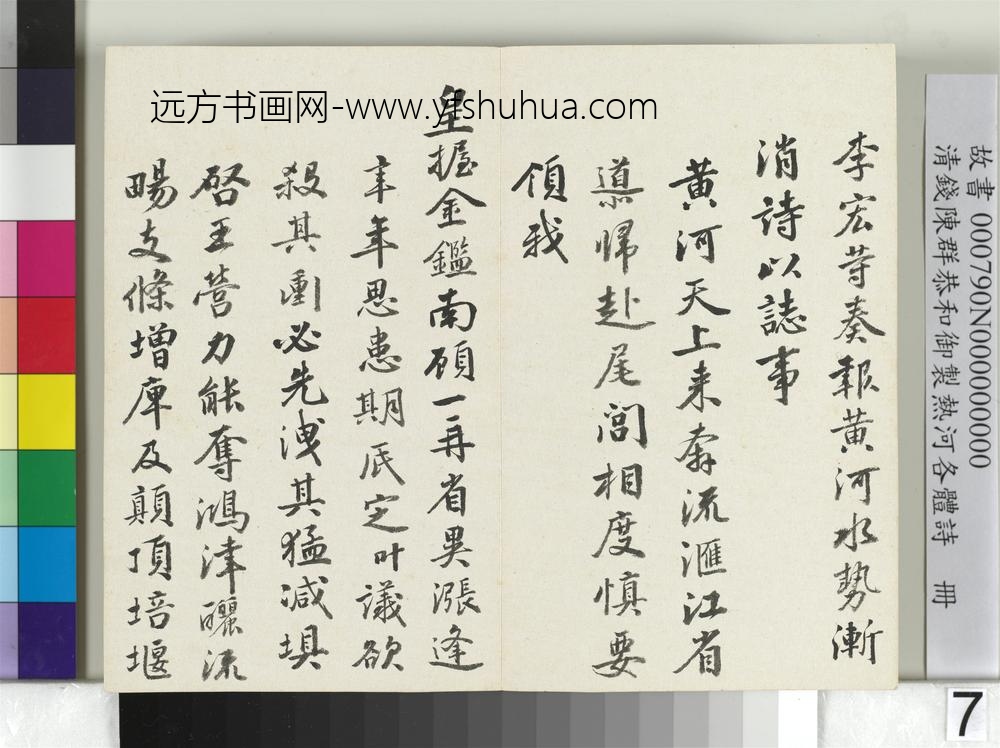 李宏等奏報黃河水勢漸
消詩以誌事
黃河天上来奔流滙江省
導歸赴尾閭相度慎要
領我
皇握金鑑南顧一再省異漲逢
辛年思患期底定叶議欲
殺其衝必先洩其猛減填
啓王營力能奪鴻津釃流
暢支條增庫及顛頂培堰
远方书画网-www.yfshuhua.com
故書 000790N000000000
清錢陳群恭和御製熱河各體詩 冊
7